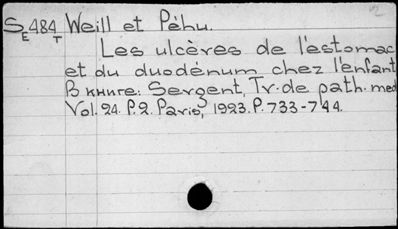 S 484 Weill et Péhu.
E T
Les ulcères de l'estomac
et du duodénum chez l'enfant
В книге: Sergent, Tr. de path. med
Vol. 24. P. 2. Paris, 1923. P. 733-744.